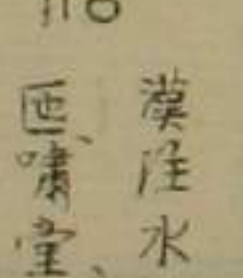 漢注水
匜、嘯堂、